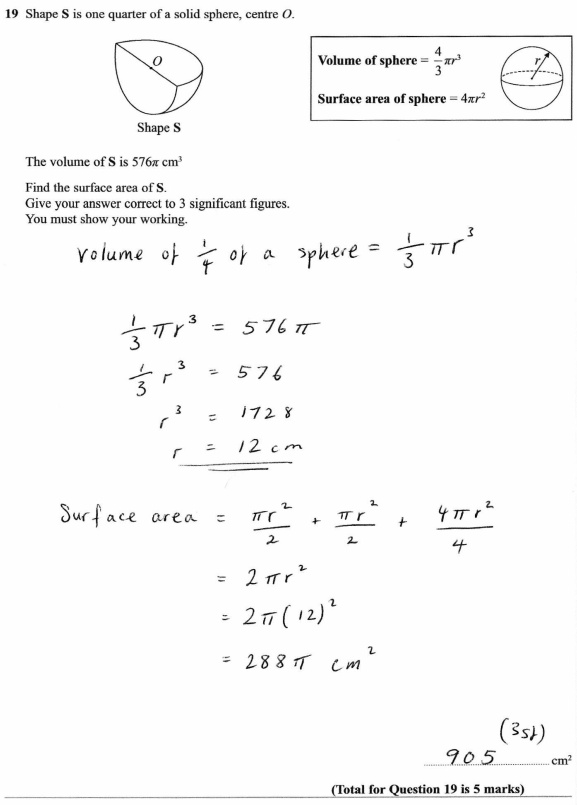 19 Shape S is one quarter of a solid sphere, centre O.
O
Shape S
Volume of sphere = 4/3 πr³
Surface area of sphere = 4πr²
r
The volume of S is 576π cm³
Find the surface area of S.
Give your answer correct to 3 significant figures.
You must show your working.
Volume of 1/4 of a sphere = 1/3 πr³
1/3 πr³ = 576π
1/3 r³ = 576
r³ = 1728
r = 12 cm
Surface area = πr²/2 + πr²/2 + 4πr²/4
= 2πr²
= 2π(12)²
= 288π cm²
(3sf)
905 cm²
(Total for Question 19 is 5 marks)